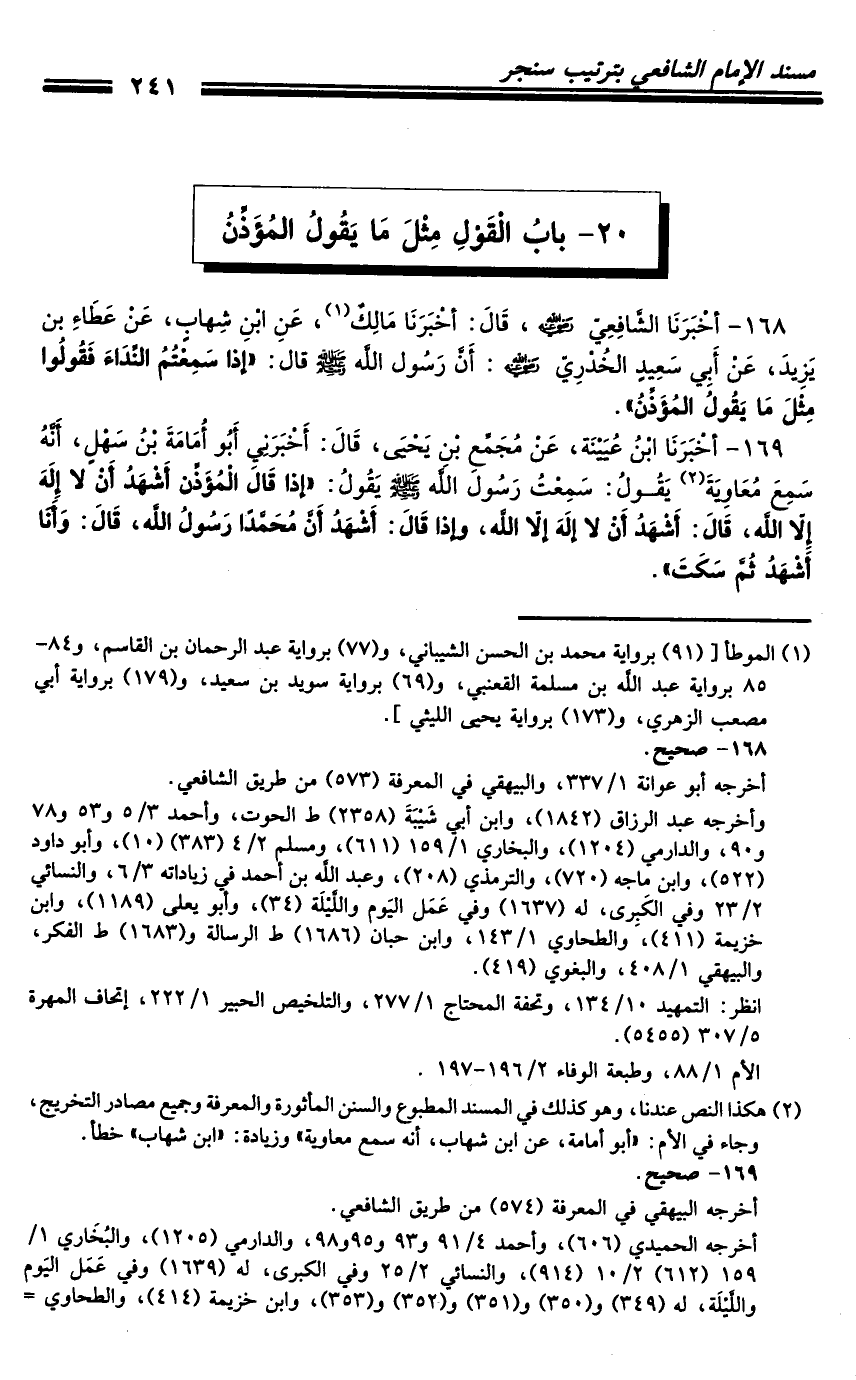 مسند الإمام الشافعي بترتيب سنجر
٢٤١
٢٠- بابُ الْقَوْلِ مِثْلَ مَا يَقُولُ المُؤَذِّنُ
١٦٨- أخْبَرَنَا الشَّافِعِيّ رضي الله عنه ، قَالَ: أخْبَرَنَا مَالِكٌ(١)، عَنِ ابْنِ شِهابٍ، عَنْ عَطَاءِ بن
يَزِيدَ، عَنْ أبي سَعِيدٍ الخُدْرِيّ رضي الله عنه : أنَّ رَسُول اللّه ﷺ قال: «إذا سَمِعْتُمُ النِّدَاءَ فَقُولُوا
مِثْلَ مَا يَقُولُ المُؤَذِّنُ».
١٦٩- أخْبَرَنَا ابْنُ عُيَيْنَة، عَنْ مُجَمِّعِ بْنِ يَحْيَى، قَالَ: أَخْبَرَنِي أَبُو أُمَامَةَ بْنُ سَهْلٍ، أَنَّهُ
سَمِعَ مُعَاوِيَةَ(٢) يَقُـولُ: سَمِعْتُ رَسُولَ اللَّه ﷺ يَقُولُ: «إذا قَالَ الْمُؤَذِّن أَشْهَدُ أَنْ لا إِلَهَ
إِلّا اللَّه، قَالَ: أَشْهَدُ أَنْ لا إِلَهَ إِلّا اللَّه، وإذا قَالَ: أَشْهَدُ أَنَّ مُحَمَّدًا رَسُولُ اللَّه، قَالَ: وَأَنَا
أَشْهَدُ ثُمَّ سَكَتَ».
(١) الموطأ [ (٩١) برواية محمد بن الحسن الشيباني، و(٧٧) برواية عبد الرحمان بن القاسم، و٨٤-
٨٥ برواية عبد اللَّه بن مسلمة القعنبي، و(٦٩) برواية سويد بن سعيد، و(١٧٩) برواية أبي
مصعب الزهري، و(١٧٣) برواية يحيى الليثي ].
١٦٨- صحيح.
أخرجه أبو عوانة ٣٣٧/١، والبيهقي في المعرفة (٥٧٣) من طريق الشافعي.
وأخرجه عبد الرزاق (١٨٤٢)، وابن أبي شَيْبَةَ (٢٣٥٨) ط الحوت، وأحمد ٥/٣ و٥٣ و٧٨
و٩٠، والدارمي (١٢٠٤)، والبخاري ١٥٩/١ (٦١١)، ومسلم ٤/٢ (٣٨٣) (١٠)، وأبو داود
(٥٢٢)، وابن ماجه (٧٢٠)، والترمذي (٢٠٨)، وعبد اللَّه بن أحمد في زياداته ٦/٣، والنسائي
٢٣/٢ وفي الكَبِرى، له (١٦٣٧) وفي عَمَل اليَوم واللَّيْلَة (٣٤)، وأبو يعلى (١١٨٩)، وابن
خزيمة (٤١١)، والطحاوي ١٤٣/١، وابن حبان (١٦٨٦) ط الرسالة و(١٦٨٣) ط الفكر،
والبيهقي ٤٠٨/١، والبغوي (٤١٩).
انظر: التمهيد ١٣٤/١٠، وتحفة المحتاج ٢٧٧/١، والتلخيص الحبير ٢٢٢/١، إتحاف المهرة
٣٠٧/٥ (٥٤٥٥).
الأم ٨٨/١، وطبعة الوفاء ١٩٦/٢-١٩٧ .
(٢) هكذا النص عندنا، وهو كذلك في المسند المطبوع والسنن المأثورة والمعرفة وجميع مصادر التخريج،
وجاء في الأم: «أبو أمامة، عن ابن شهاب، أنه سمع معاوية» وزيادة: «ابن شهاب» خطأ.
١٦٩- صحيح.
أخرجه البيهقي في المعرفة (٥٧٤) من طريق الشافعي.
أخرجه الحميدي (٦٠٦)، وأحمد ٩١/٤ و٩٣ و٩٥و٩٨، والدارمي (١٢٠٥)، والبُخَاري ١/
١٥٩ (٦١٢) ١٠/٢ (٩١٤)، والنسائي ٢٥/٢ وفي الكبرى، له (١٦٣٩) وفي عَمَل اليَوم
واللَّيْلَة، له (٣٤٩) و(٣٥٠) و(٣٥١) و(٣٥٢) و(٣٥٣)، وابن خزيمة (٤١٤)، والطحاوي =